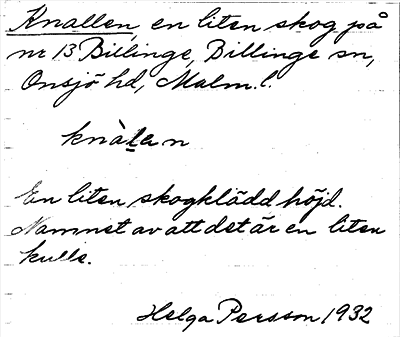 Knallen, en liten skog på
nr 13 Billinge, Billinge sn,
Onsjö hd, Malm. l.
knàlạn
En liten skogklädd höjd.
Namnet av att det är en liten
kulle.
Helga Persson 1932